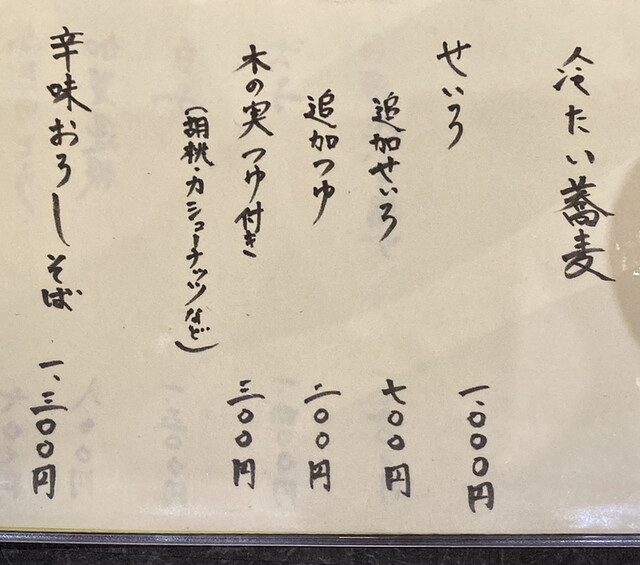 冷たい蕎麦
せいろ 一、〇〇〇円
追加せいろ 七〇〇円
追加つゆ 二〇〇円
木の実つゆ付き 三〇〇円
(胡桃・カシューナッツなど)
辛味おろしそば 一、三〇〇円